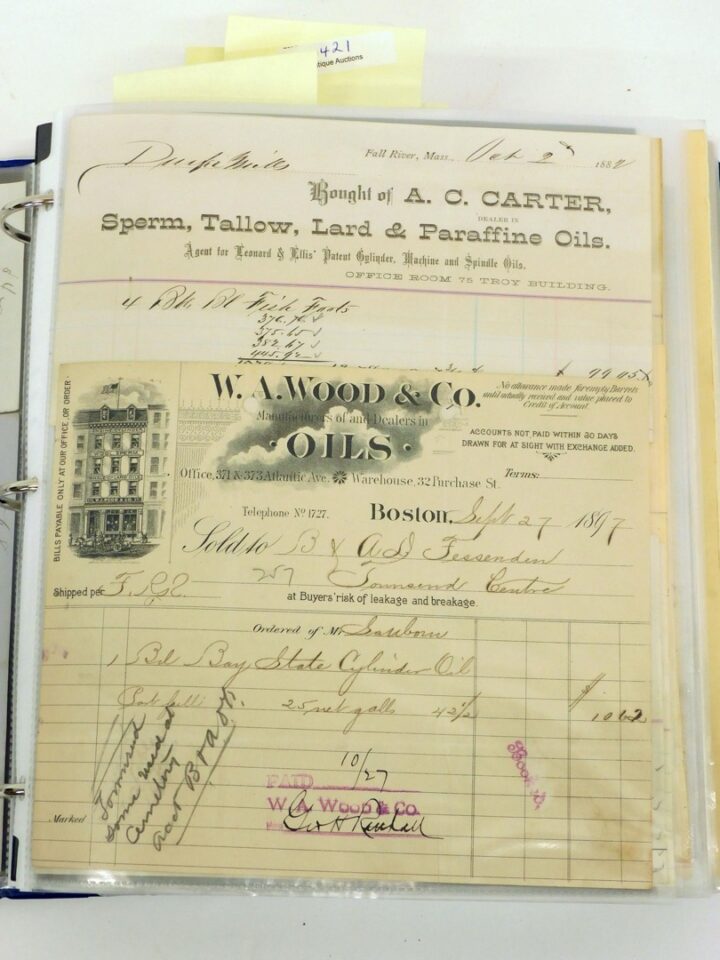 421
tique Auctions
Fall River, Mass., Oct 2 1882
Bought of A. C. CARTER,
DEALER IN
Sperm, Tallow, Lard & Paraffine Oils.
Agent for Leonard & Ellis' Patent Cylinder, Machine and Spindle Oils.
OFFICE ROOM 75 TROY BUILDING.
4 Bls Fish Foots
BILLS PAYABLE ONLY AT OUR OFFICE, OR ORDER
W. A. WOOD & CO.
Manufacturers of and Dealers in
OILS
Office, 371 & 373 Atlantic Ave. Warehouse, 32 Purchase St.
No allowance made for empty Barrels
until actually received and value placed to
Credit of Account.
ACCOUNTS NOT PAID WITHIN 30 DAYS
DRAWN FOR AT SIGHT WITH EXCHANGE ADDED.
Terms:
Telephone No 1727.
Boston, Sept 27 1897
Sold to B & A D Fessenden
257 Townsend Centre
Shipped per F. R.R.
at Buyers' risk of leakage and breakage.
Ordered of Mr Sanborn
1 Bl Bay State Cylinder Oil
25 net galls 42½ $ 10 62
Townsend
some used at
Cemetery
acct B & A D F.
Booked.
10/27
PAID
W. A. WOOD & CO.
Geo H Kendall
Marked